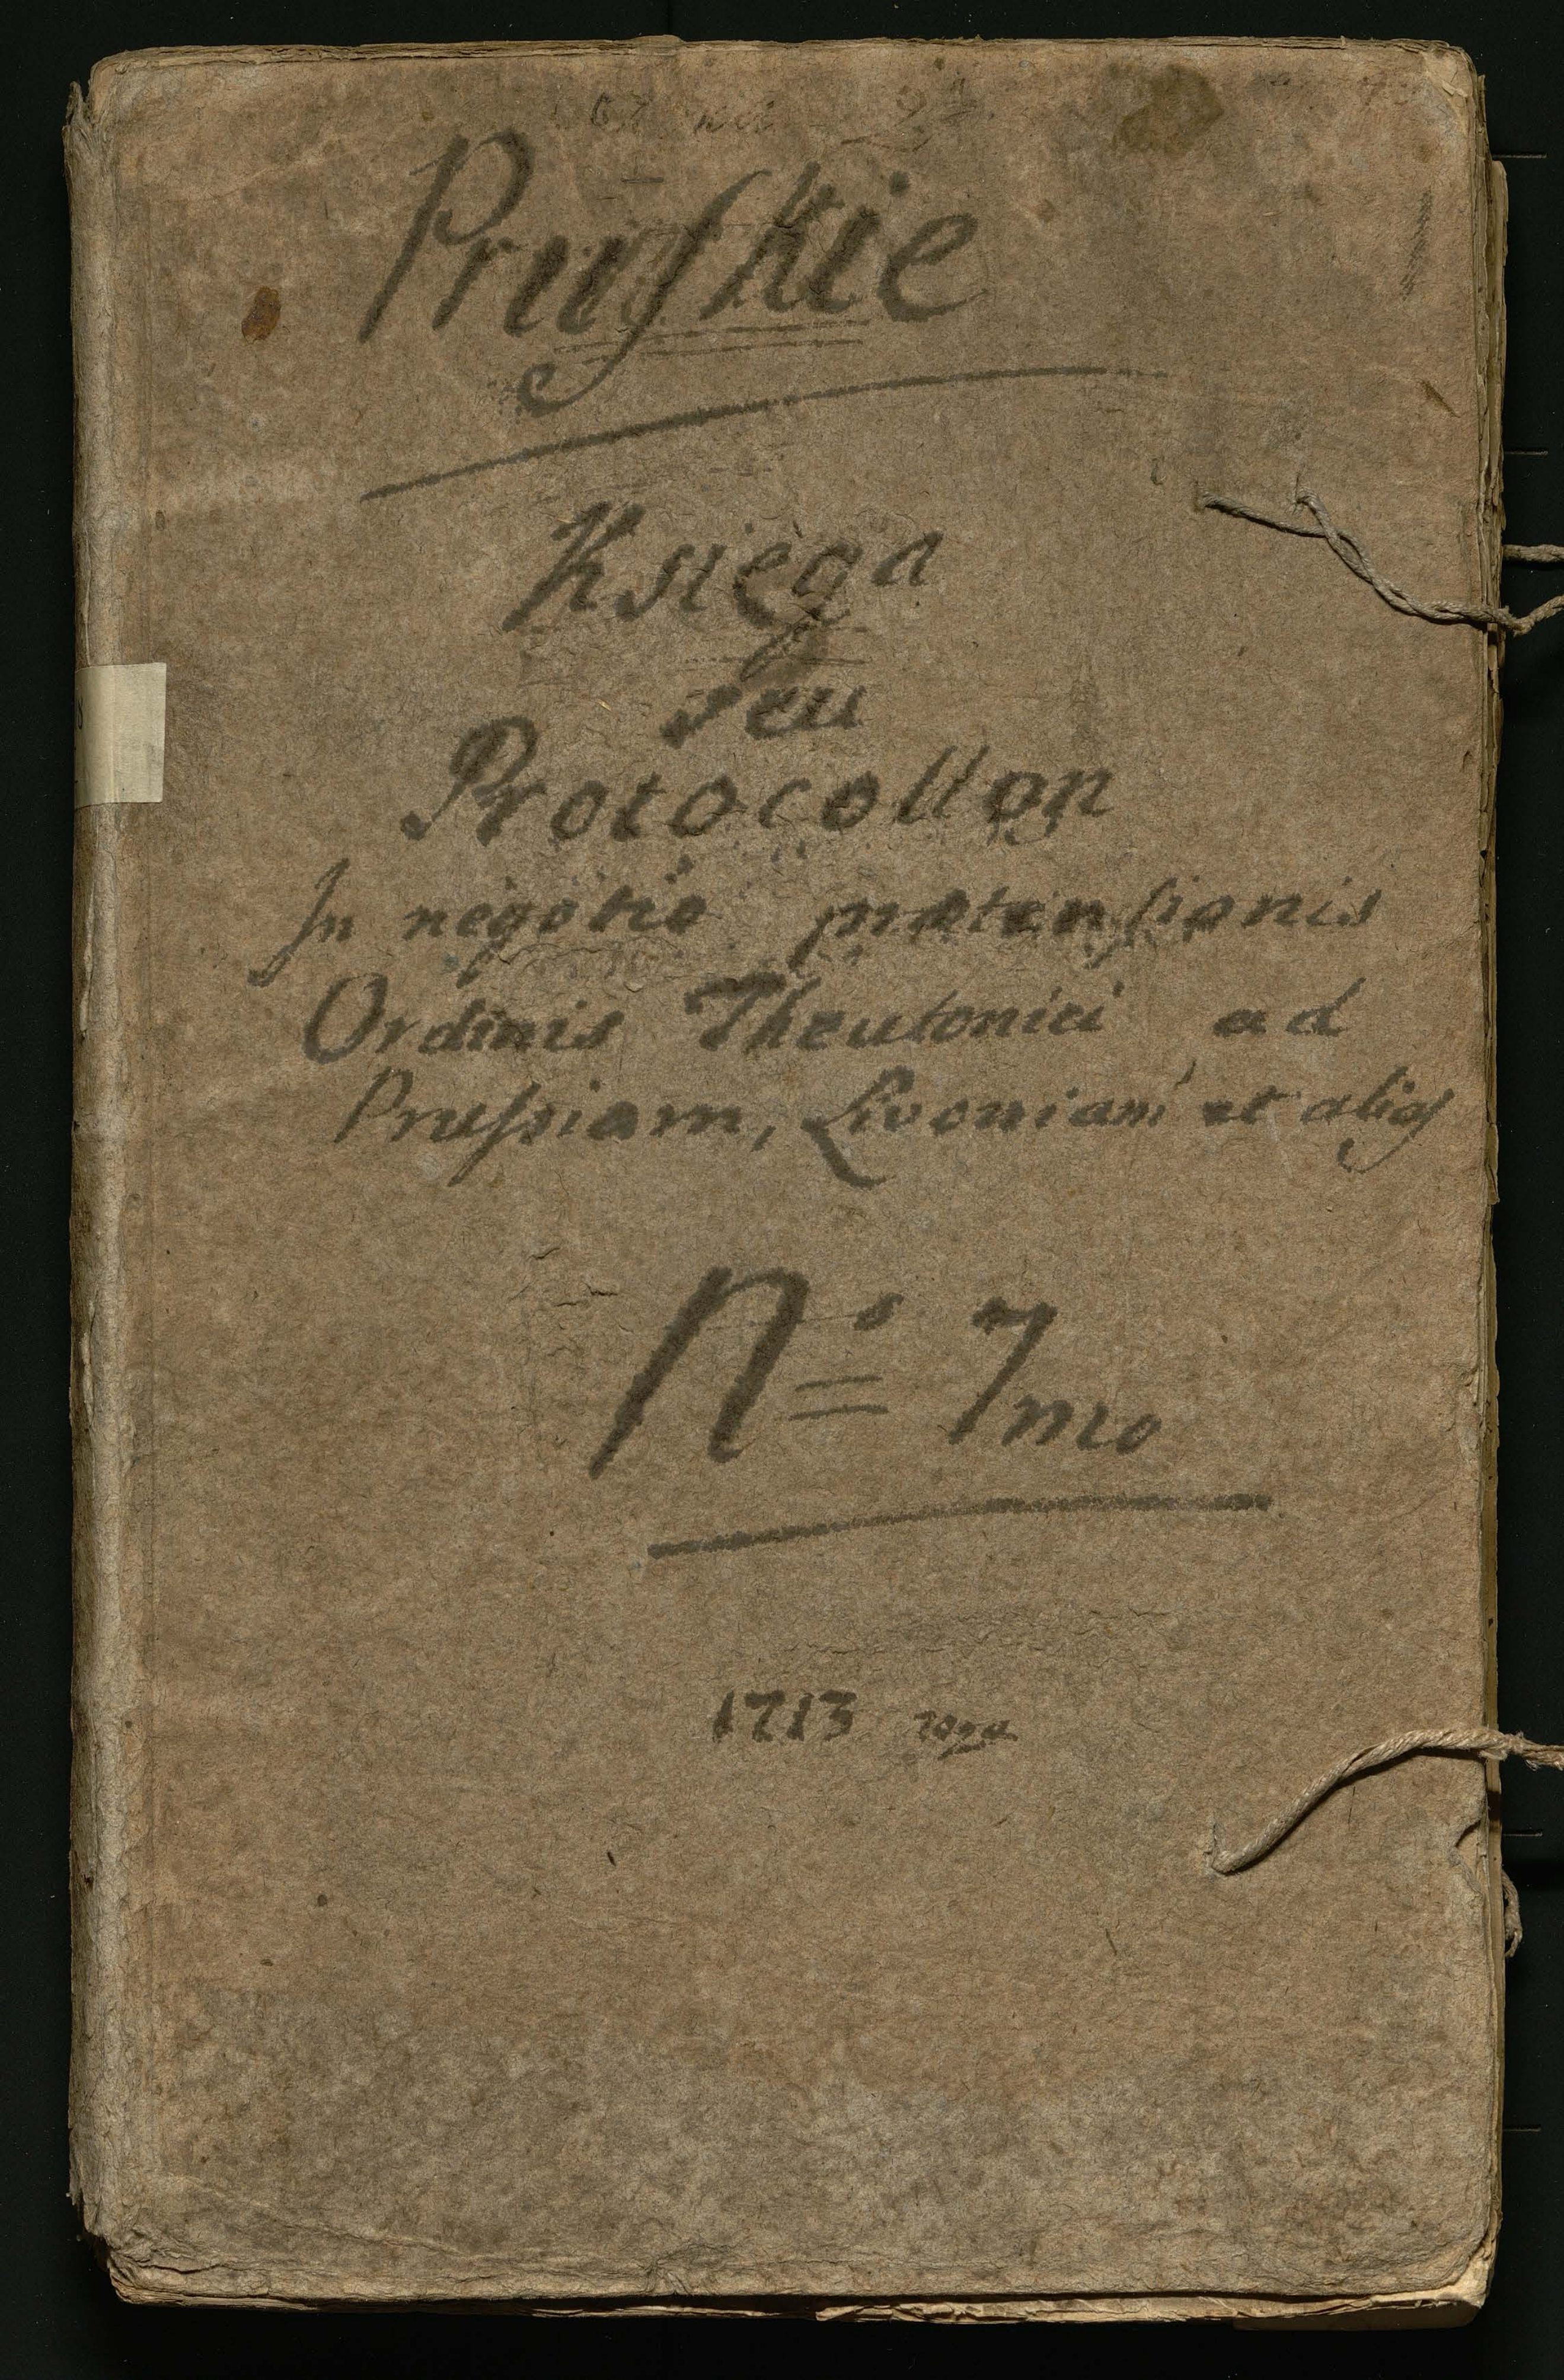 Pruſkie
Księga
seu
Protocollon
In negotio prætenſionis
Ordinis Theutonici ad
Pruſsiam, Livoniam et alias
No 7mo
1713